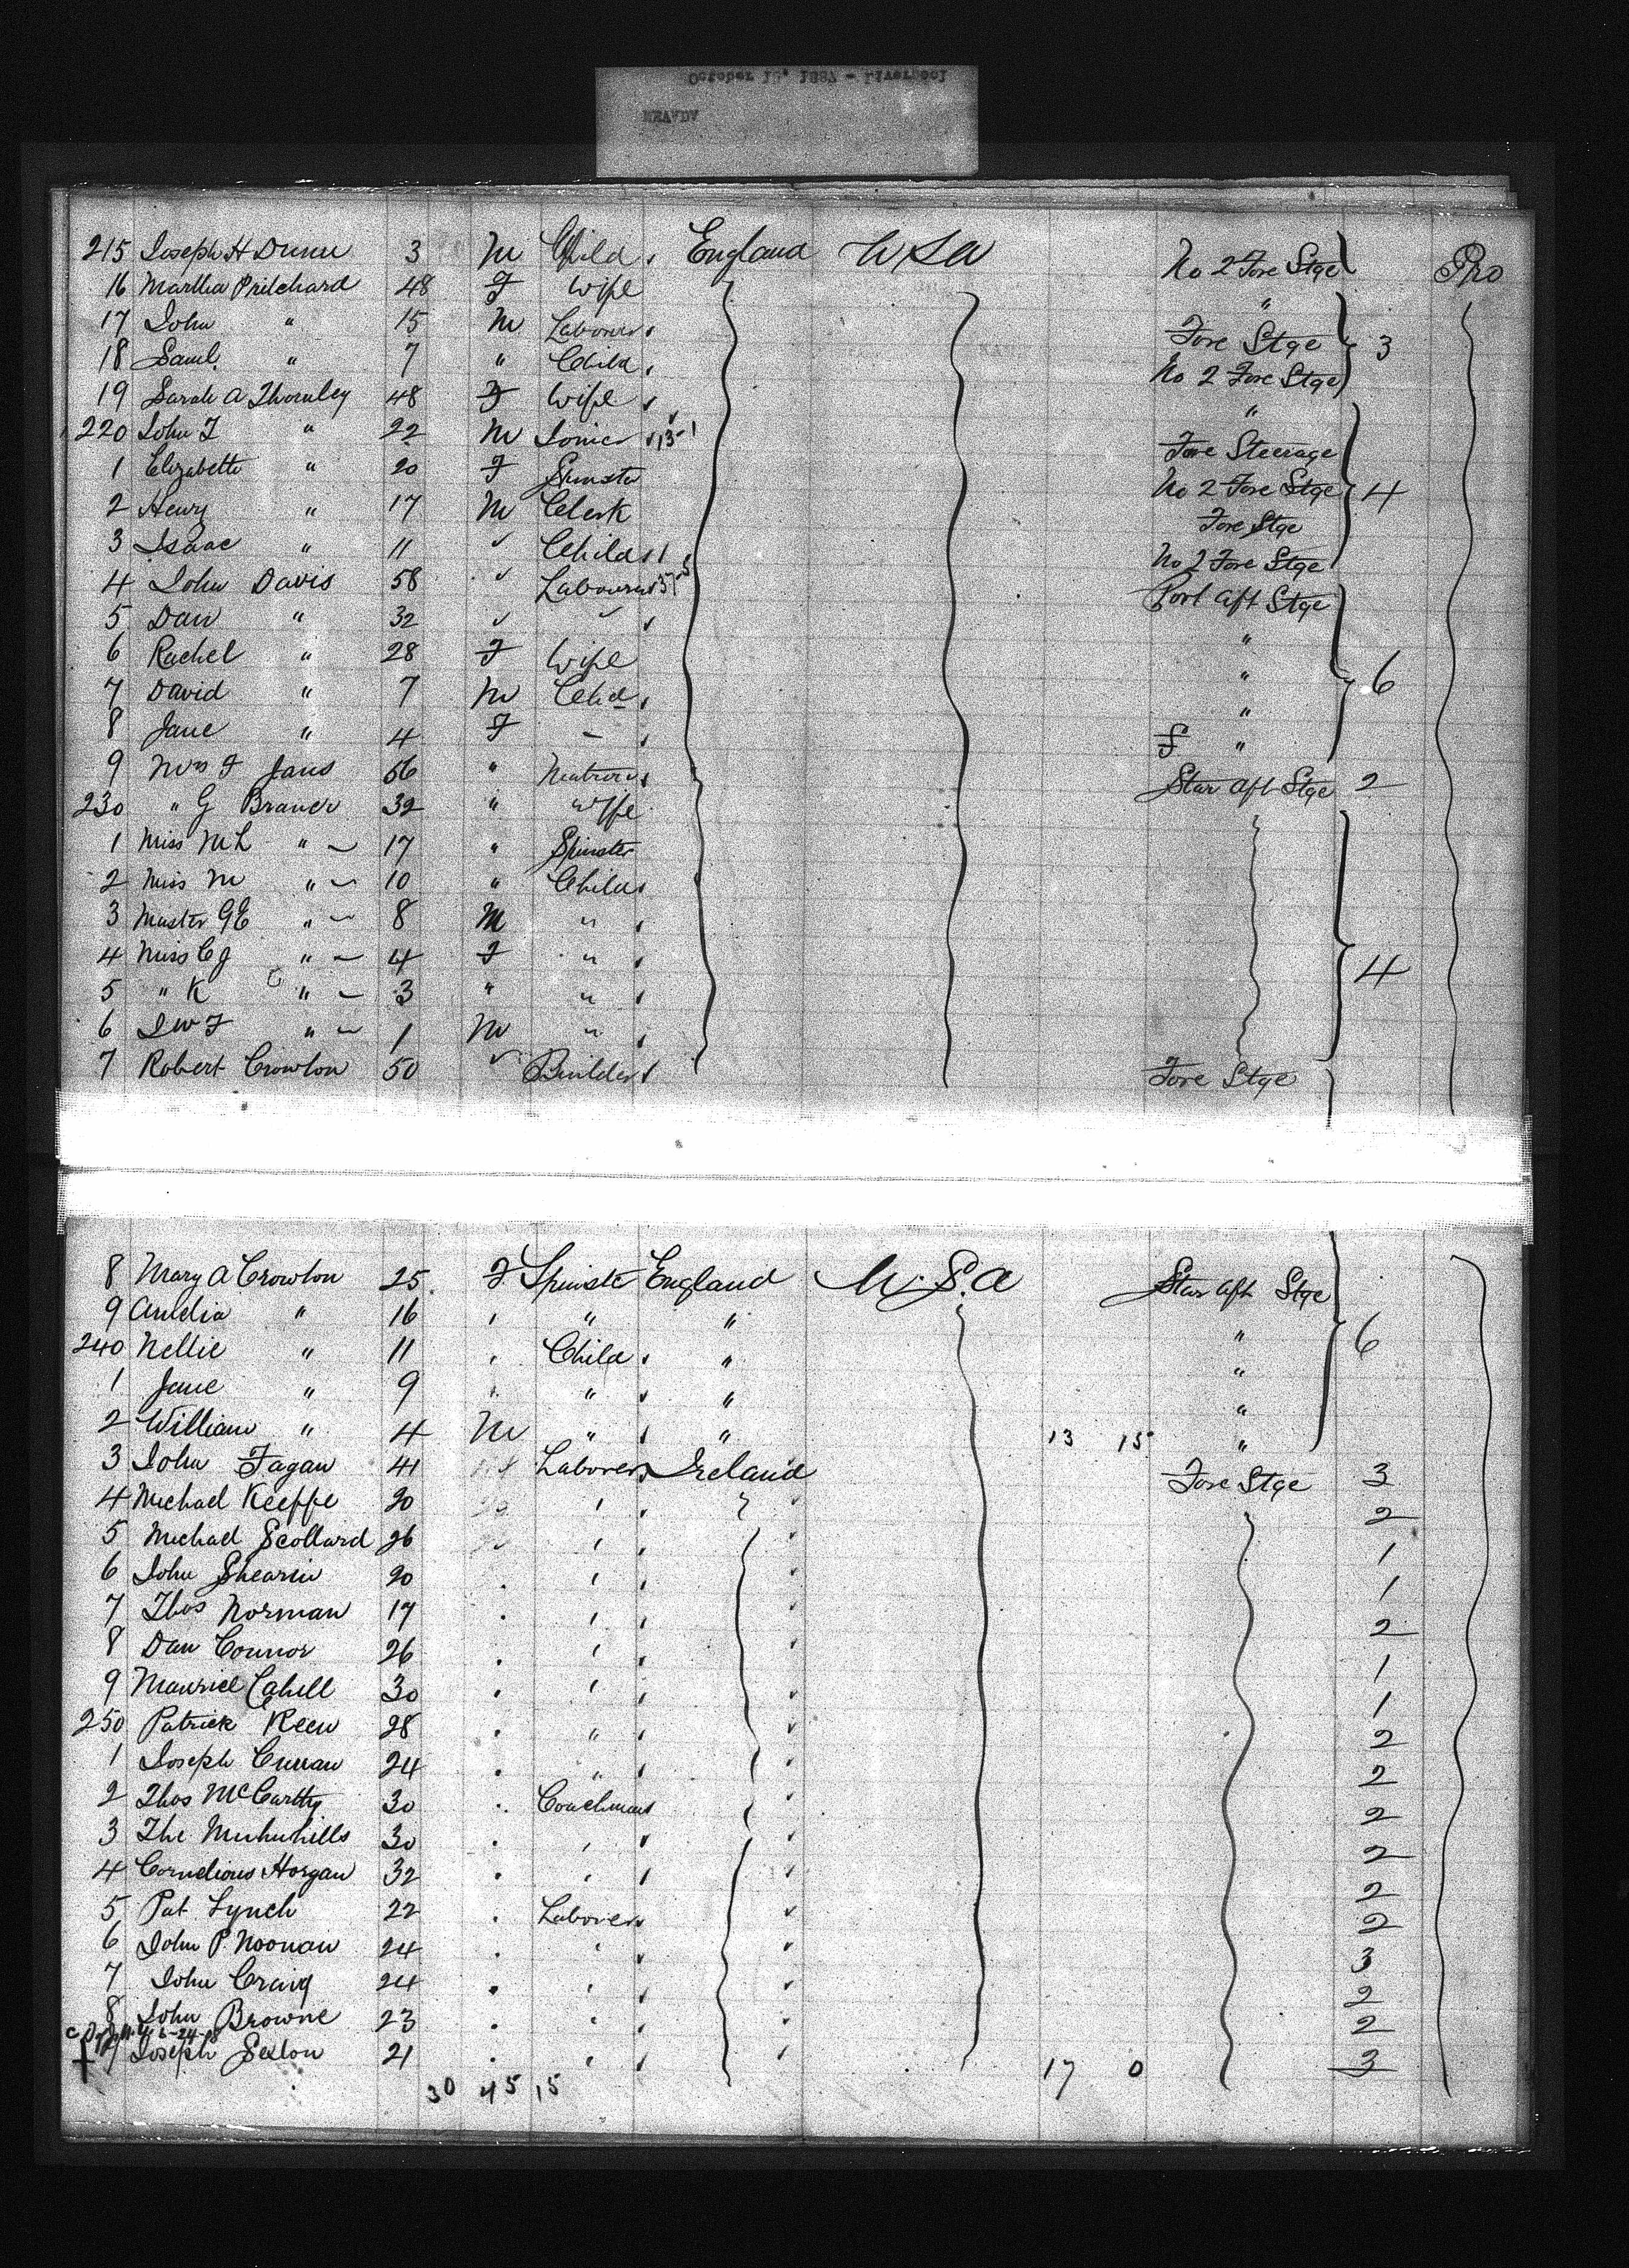 October 15, 1887 - Liverpool
NEVADA
215 Joseph H Dunn 3 M Child England U S A No 2 Fore Stge Pro
16 Martha Pritchard 48 F Wife "
17 John " 15 M Labourer Fore Stge 3
18 Saml. " 7 " Child No 2 Fore Stge
19 Sarah A Thornley 48 F Wife "
220 John T " 22 M Fore Steerage
1 Elizabeth " 20 F Spinster No 2 Fore Stge 4
2 Henry " 17 M Clerk Fore Stge
3 Isaac " 11 " Child No 2 Fore Stge
4 John Davis 58 " Labourer Port aft Stge
5 Dan " 32 " " "
6 Rachel " 28 F Wife " 6
7 David " 7 M Child "
8 Jane " 4 F " "
9 Mrs F Jans 56 " Matron Star aft Stge 2
230 " G Braner 32 " Wife
1 Miss M L " 17 " Spinster
2 Miss M " 10 " Child
3 Master G E " 8 M "
4 Miss C J " 4 F " 4
5 " K " 3 " "
6 J W F " 1 M "
7 Robert Crowton 50 " Builder Fore Stge
8 Mary A Crowton 25 F Spinster England U.S.A Star aft Stge
9 Amelia " 16 " " " "
240 Nellie " 11 " Child " " 6
1 Jane " 9 " " " "
2 William " 4 M " " 13 15 "
3 John Fagan 41 Laborer Ireland Fore Stge 3
4 Michael Keeffe 20 " 2
5 Michael Scollard 26 " 1
6 John Shearin 20 " " 1
7 Thos Norman 17 " " 2
8 Dan Connor 26 " " 1
9 Maurice Cahill 30 " " 1
250 Patrick Keen 28 " " 2
1 Joseph Curran 24 " " 2
2 Thos McCarthy 30 " Coachman 2
3 The 30 " " 2
4 Cornelious Horgan 32 " " 2
5 Pat Lynch 22 " Laborer 2
6 John P. Noonan 24 " " 3
7 John Craig 24 " " 2
8 John Browne 23 " " 2
9 Joseph Sexton 21 " " 17 0 3
30 45 15